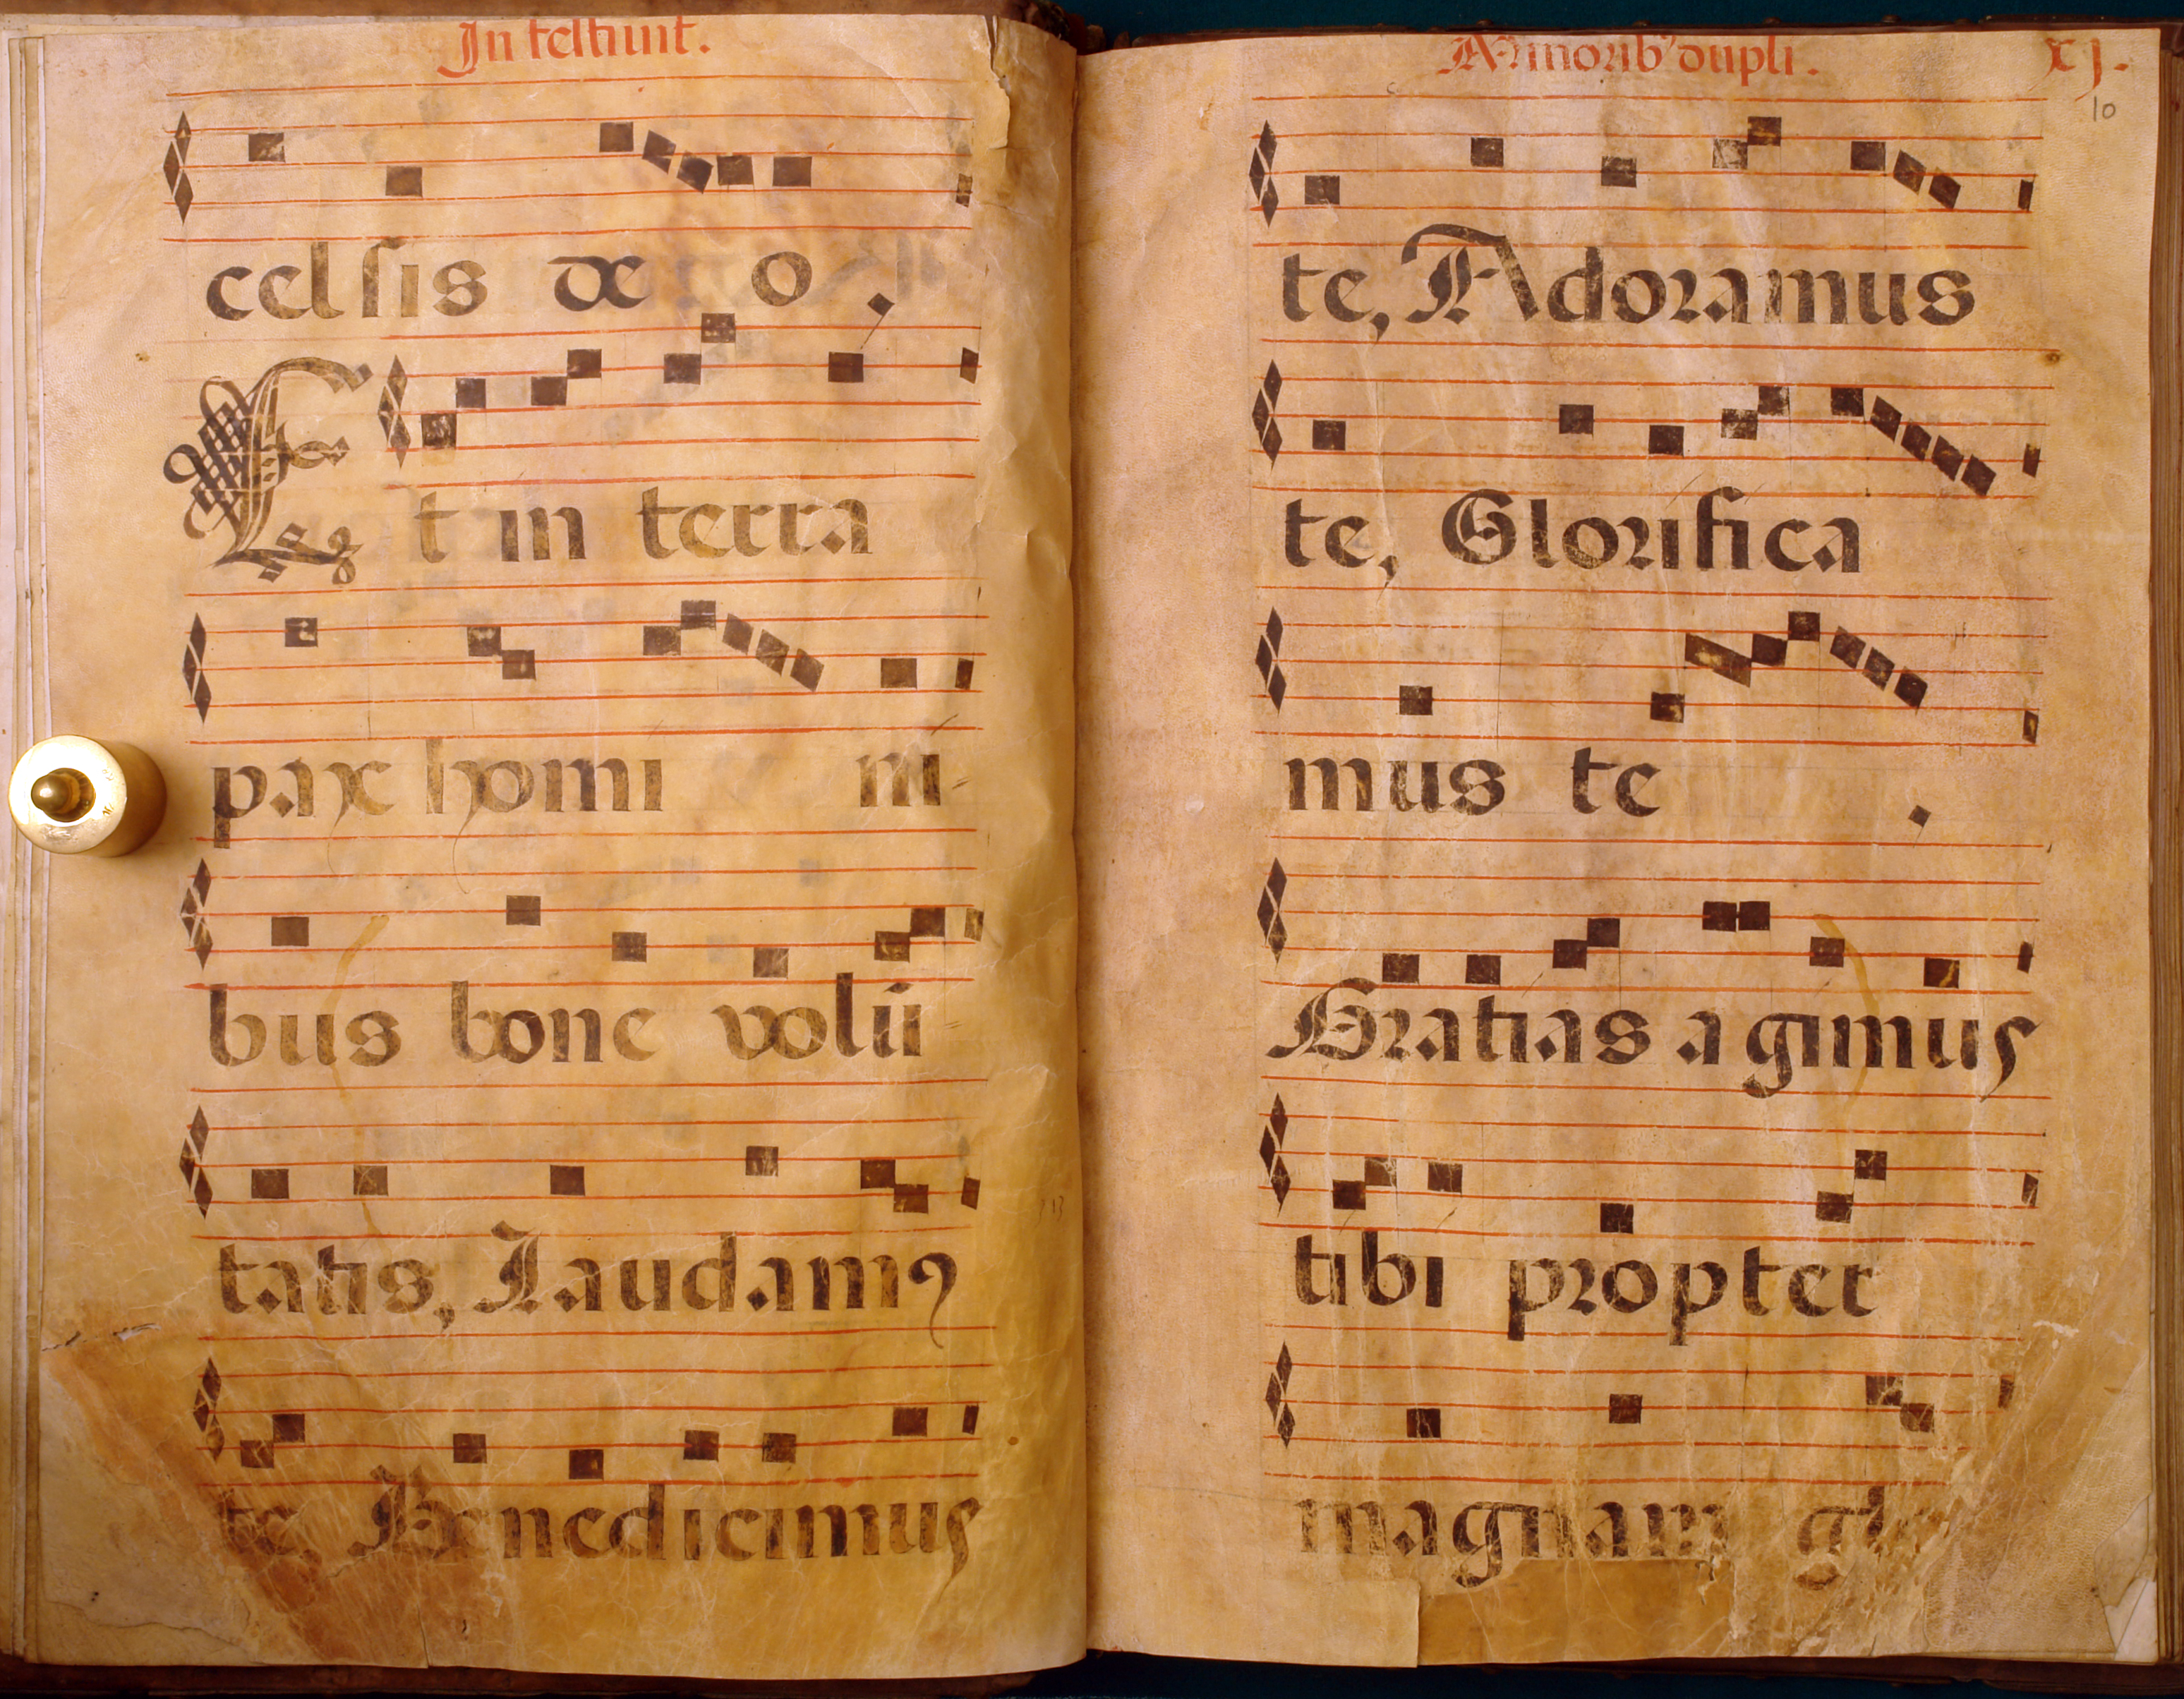 In festiuit.
celsis deo.
Et in terra
pax homi ni-
bus bone volū
tatis, Laudamꝰ
te, Benedicimus
Minorib' dupli.
xj.
10
te, Adoramus
te, Glorifica
mus te .
Gratias agimus
tibi propter
magnam glo